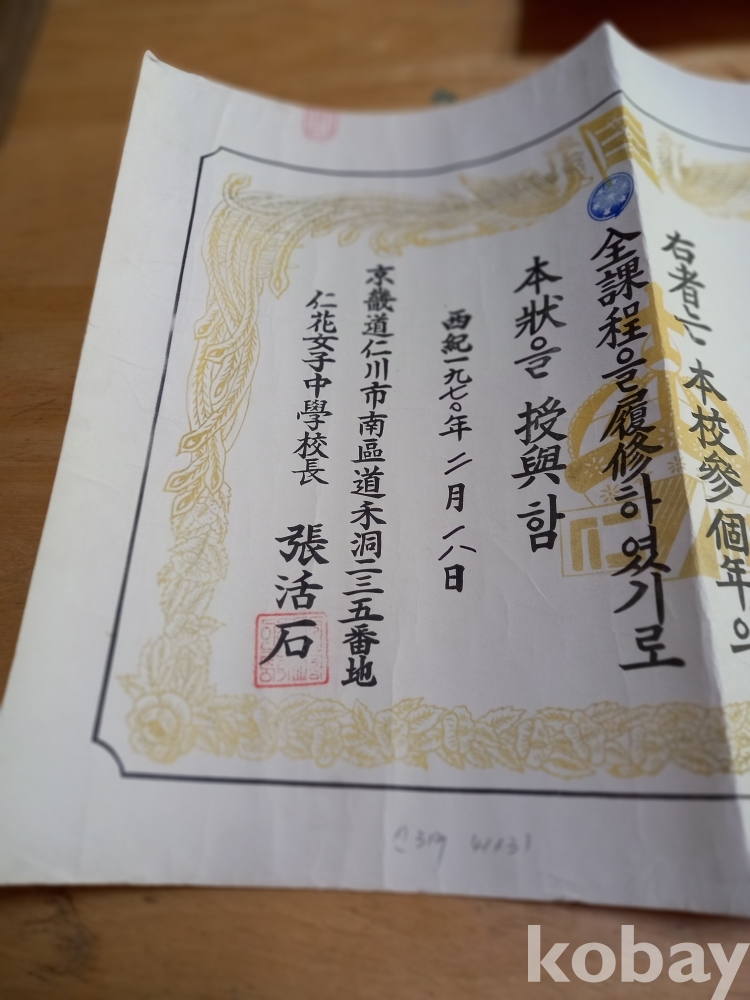 右者는 本校參個年의
全課程을履修하였기로
本狀을 授與함
西紀一九七〇年 二月 一八日
京畿道仁川市南區道禾洞二三五番地
仁花女子中學校長 張活石
kobay